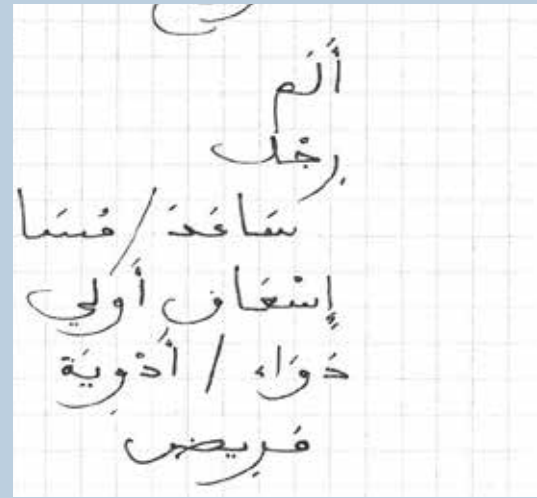 أَلَم
رِجْل
سَاعَدَ / مُسَا
إِسْعَاف أَوَّلي
دَوَاء / أَدْوِيَة
مَريض